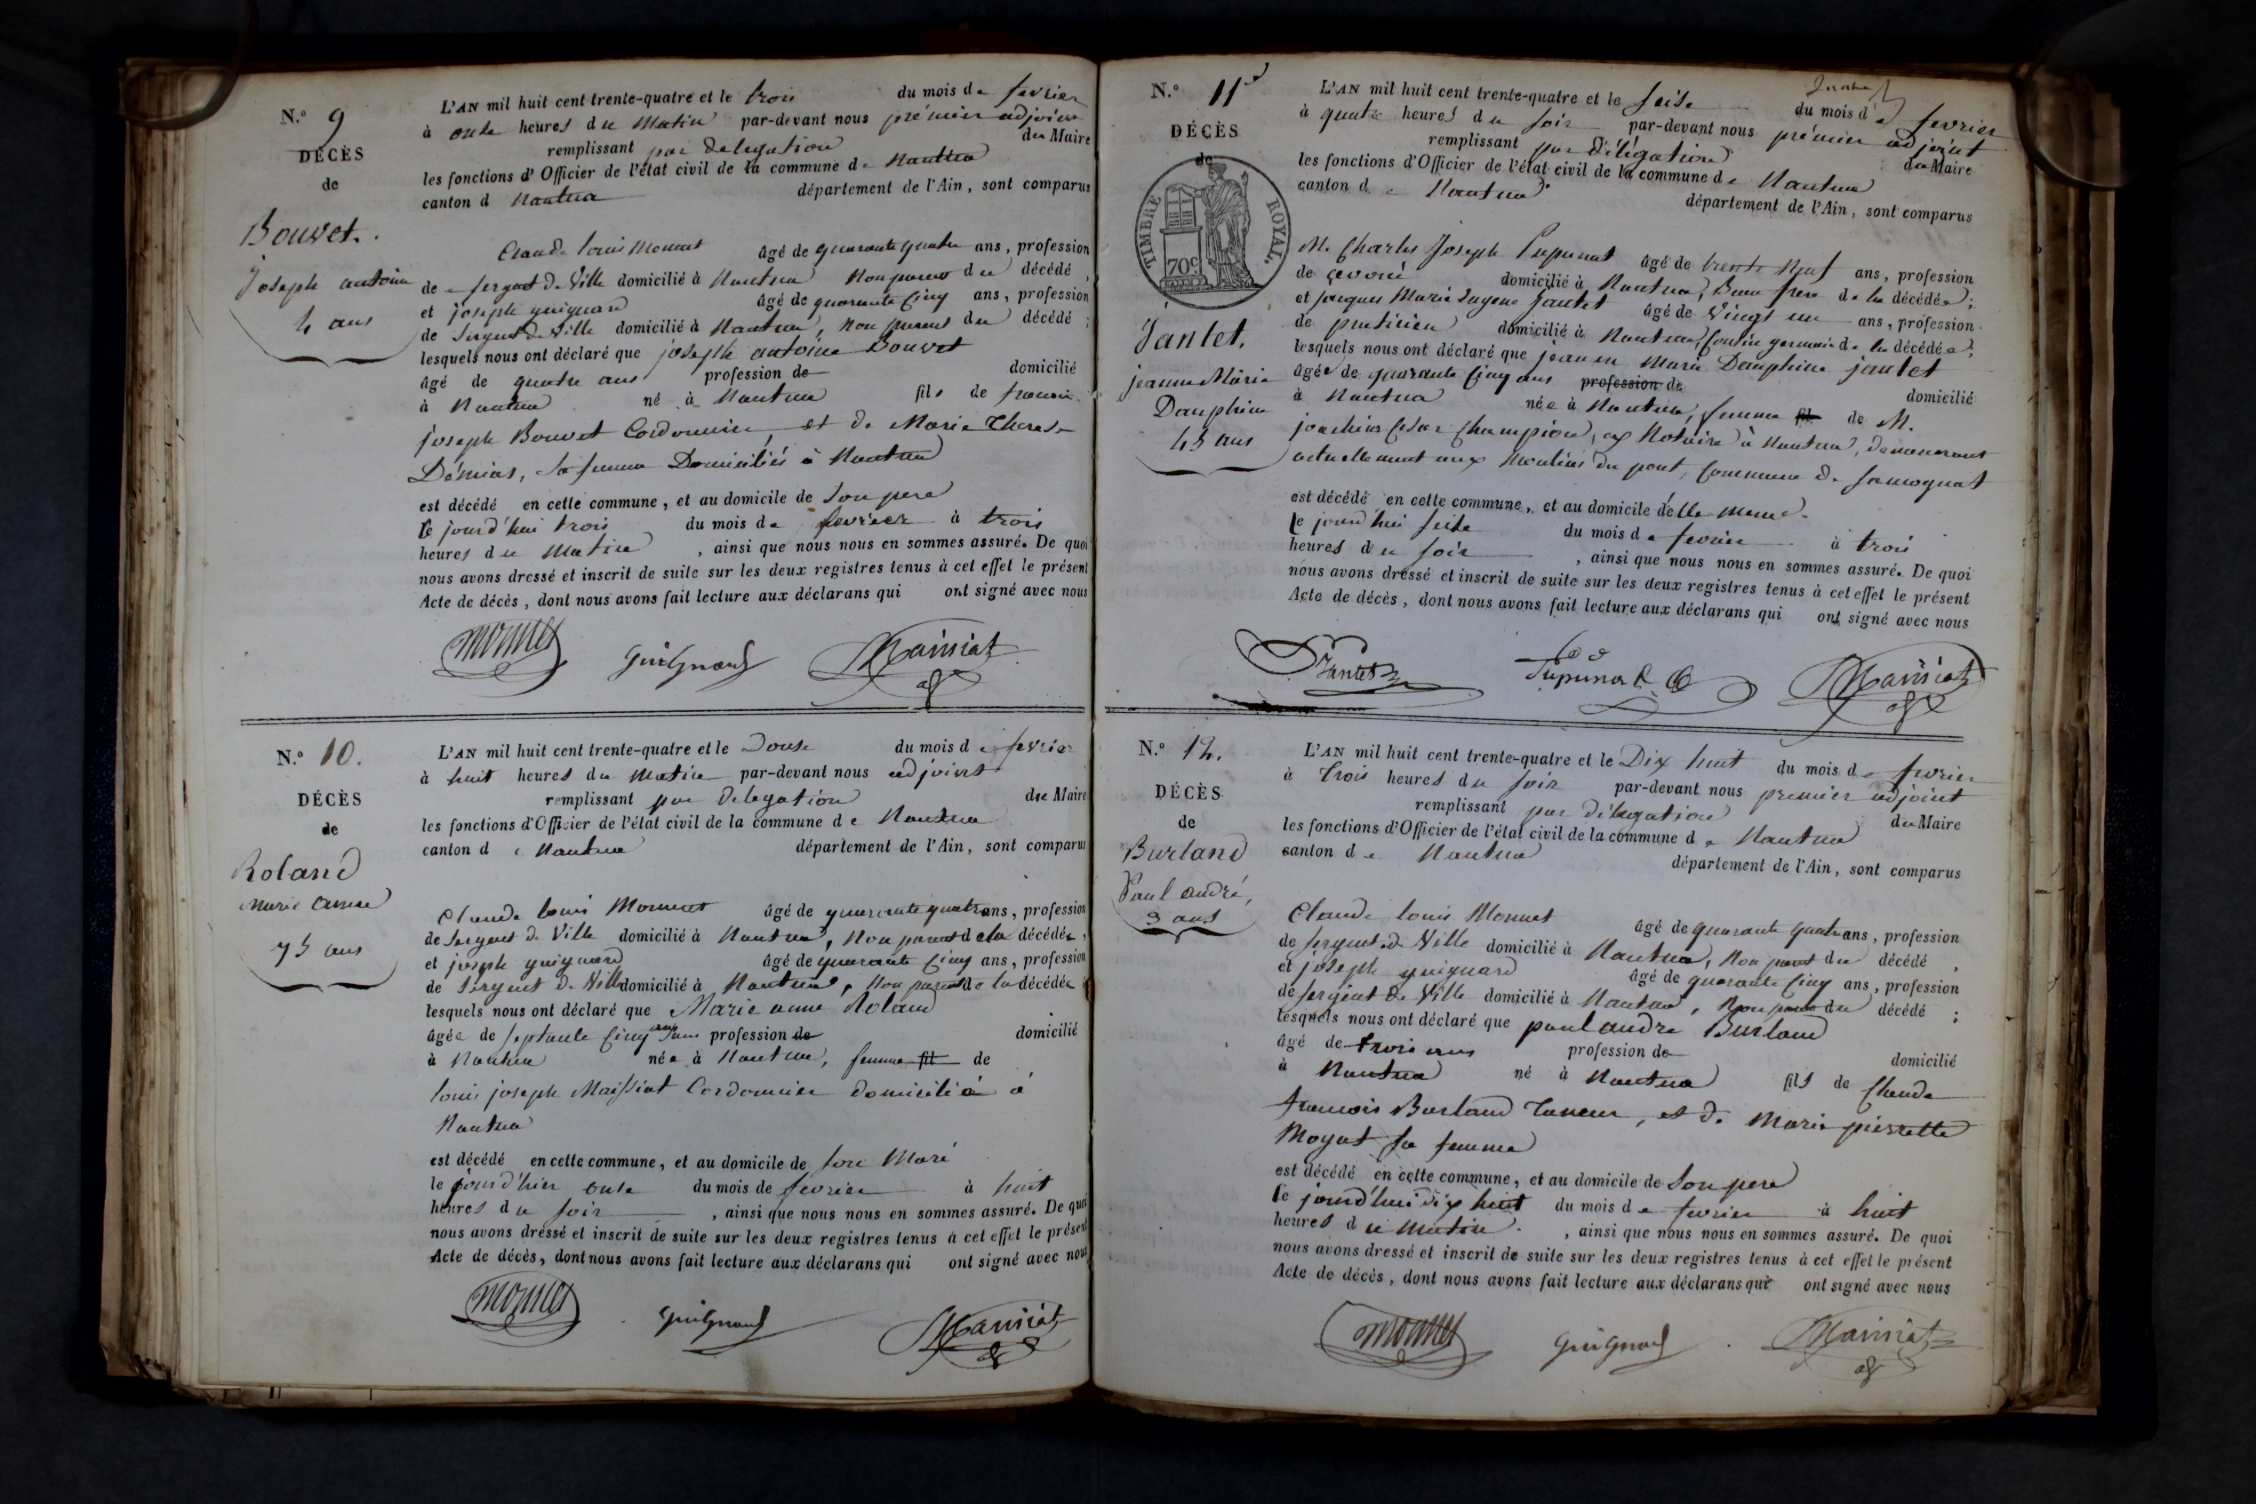 N.o 9
DÉCÈS
de
Bouvet.
Joseph antoine
4 ans
L'AN mil huit cent trente-quatre et le trois du mois de fevrier
à onse heures du Matin par-devant nous prémier adjoint
remplissant par delegation du Maire
les fonctions d'Officier de l'état civil de la commune de Nantua
canton d Nantua département de l'Ain, sont comparus
Claude louis Monnet âgé de quarante quatre ans, profession
de sergent de Ville domicilié à Nantua Non parent du décédé,
et joseph guignard âgé de quarante Cinq ans, profession
de Sergent de Ville domicilié à Nantua, Non parent du décédé;
lesquels nous ont déclaré que joseph antoine Bouvet
âgé de quatre ans profession de domicilié
à Nantua né à Nantua fils de francois
joseph Bouvet Cordonnier, et de Marie Therese
Démias, sa femme Domiciliés à Nantua
est décédé en cette commune, et au domicile de Son pere
le jourd'hui trois du mois de fevrier à trois
heures du Matin, ainsi que nous nous en sommes assuré. De quoi
nous avons dressé et inscrit de suite sur les deux registres tenus à cet effet le présent
Acte de décès, dont nous avons fait lecture aux déclarans qui ont signé avec nous
Monnet Guignard Maissiat
N.o 10.
DÉCÈS
de
Roland
Marie Anne
75 ans
L'AN mil huit cent trente-quatre et le Douse du mois de fevrier
à huit heures du Matin par-devant nous adjoint
remplissant par Delegation du Maire
les fonctions d'Officier de l'état civil de la commune de Nantua
canton de Nantua département de l'Ain, sont comparus
Claude louis Monnet âgé de quarante quatre ans, profession
de Sergent de Ville domicilié à Nantua, Non parent de la décédée,
et joseph guignard âgé de quarante Cinq ans, profession
de Sergent de Ville domicilié à Nantua, Non parent de la décédée
lesquels nous ont déclaré que Marie anne Roland
âgée de septante Cinq ans profession de domicilié
à Nantua née à Nantua, femme fil de
louis joseph Maissiat Cordonnier domicilié à
Nantua
est décédé en cette commune, et au domicile de son Mari
le jourd'hier onse du mois de fevrier à huit
heures du soir, ainsi que nous nous en sommes assuré. De quoi
nous avons dressé et inscrit de suite sur les deux registres tenus à cet effet le présent
Acte de décès, dont nous avons fait lecture aux déclarans qui ont signé avec nous
Monnet Guignard Maissiat
N.o 11
DÉCÈS
de
TIMBRE ROYAL.
70c
Jantet.
jeanne Marie
Dauphine
45 ans
L'AN mil huit cent trente-quatre et le seise du mois de fevrier
à quatre heures du soir par-devant nous prémier adjoint
remplissant par Délégation du Maire
les fonctions d'Officier de l'état civil de la commune de Nantua
canton de Nantua département de l'Ain, sont comparus
M. Charles Joseph Pupunat âgé de trente Neuf ans, profession
de domicilié à Nantua, Beau frere de la décédée;
et jacques Marie Eugene Jantet âgé de Vingt un ans, profession
de praticien domicilié à Nantua, Cousin germain de la décédée;
lesquels nous ont déclaré que jeanne Marie Dauphine jantet
âgée de quarante Cinq ans profession de domicilié
à Nantua née à Nantua, femme fil de M.
joachim Cesar Champion, ex Notaire à Nantua, demeurant
actuellement aux Moulins du pont, Commune de Samognat
est décédé en cette commune, et au domicile d'elle meme.
le jourd'hui seise du mois de fevrier à trois
heures du soir, ainsi que nous nous en sommes assuré. De quoi
nous avons dressé et inscrit de suite sur les deux registres tenus à cet effet le présent
Acte de décès, dont nous avons fait lecture aux déclarans qui ont signé avec nous
Jantet Pupunat Maissiat
N.o 12.
DÉCÈS
de
Burland
Paul André,
3 ans
L'AN mil huit cent trente-quatre et le Dix huit du mois de fevrier
à Trois heures du soir par-devant nous premier adjoint
remplissant par délégation du Maire
les fonctions d'Officier de l'état civil de la commune de Nantua
canton de Nantua département de l'Ain, sont comparus
Claude louis Monnet âgé de quarante quatre ans, profession
de sergent de Ville domicilié à Nantua, Non parent du décédé,
et joseph guignard âgé de quarante Cinq ans, profession
de sergent de Ville domicilié à Nantua, Non parent du décédé;
lesquels nous ont déclaré que paul andré Burland
âgé de trois ans profession de domicilié
à Nantua né à Nantua fils de Claude
francois Burland Taneur, et de Marie pierrette
Moyat sa femme
est décédé en cette commune, et au domicile de Son pere
le jourd'hui dix huit du mois de fevrier à huit
heures du Matin, ainsi que nous nous en sommes assuré. De quoi
nous avons dressé et inscrit de suite sur les deux registres tenus à cet effet le présent
Acte de décès, dont nous avons fait lecture aux déclarans qui ont signé avec nous
Monnet Guignard Maissiat